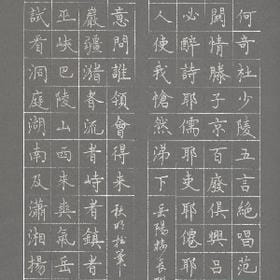 何奇杜少陵五言絕唱范
關情滕子京百廢俱興呂
必醉詩耶儒耶吏耶僊耶
人使我愴然涕下 岳陽樓長
試看洞庭湖南及瀟湘揚
巫峽巴陵山西來爽氣岳
巖疆潴者流者峙者鎮者
意問誰領會得來 秋明